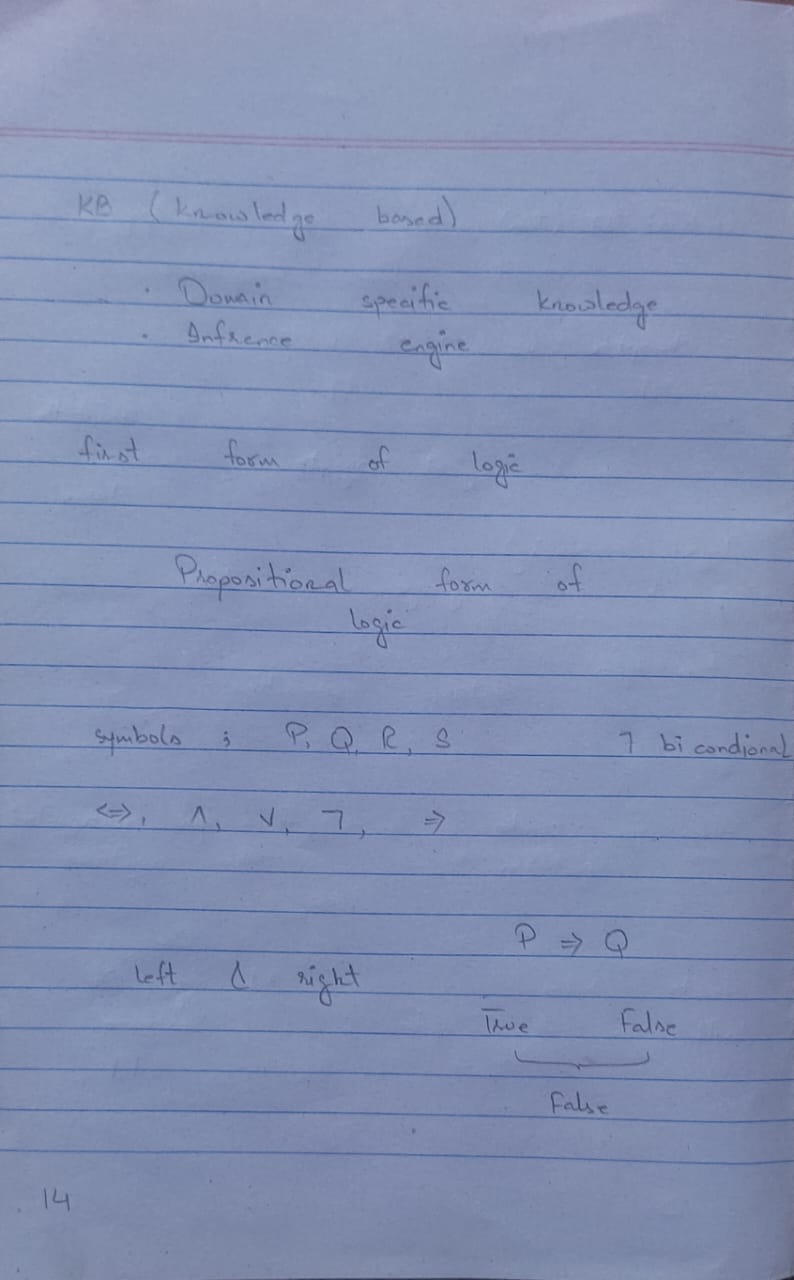 KB (knowledge based)
· Domain specific knowledge
· Infrence engine
first form of logic
Propositional form of
logic
symbols ; P, Q, R, S ⁊ bi condional
<=>, ∧, ∨, ¬, =>
P => Q
left & right
True False
False
14